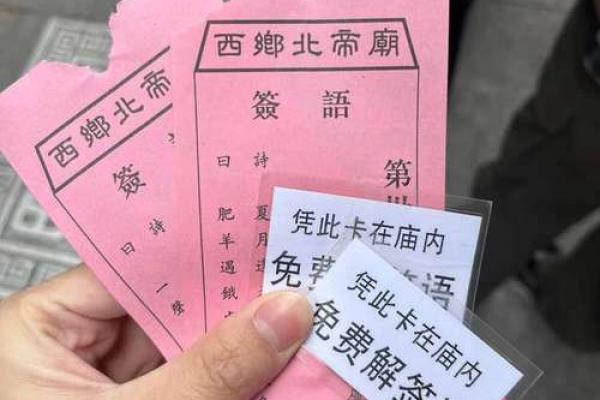 西鄉北帝
簽
詩
曰 一
西鄉北帝廟
簽語
第
詩 夏月
曰 肥羊遇餓
凭此卡在庙内
免费 语
凭此卡在庙内
免费解签